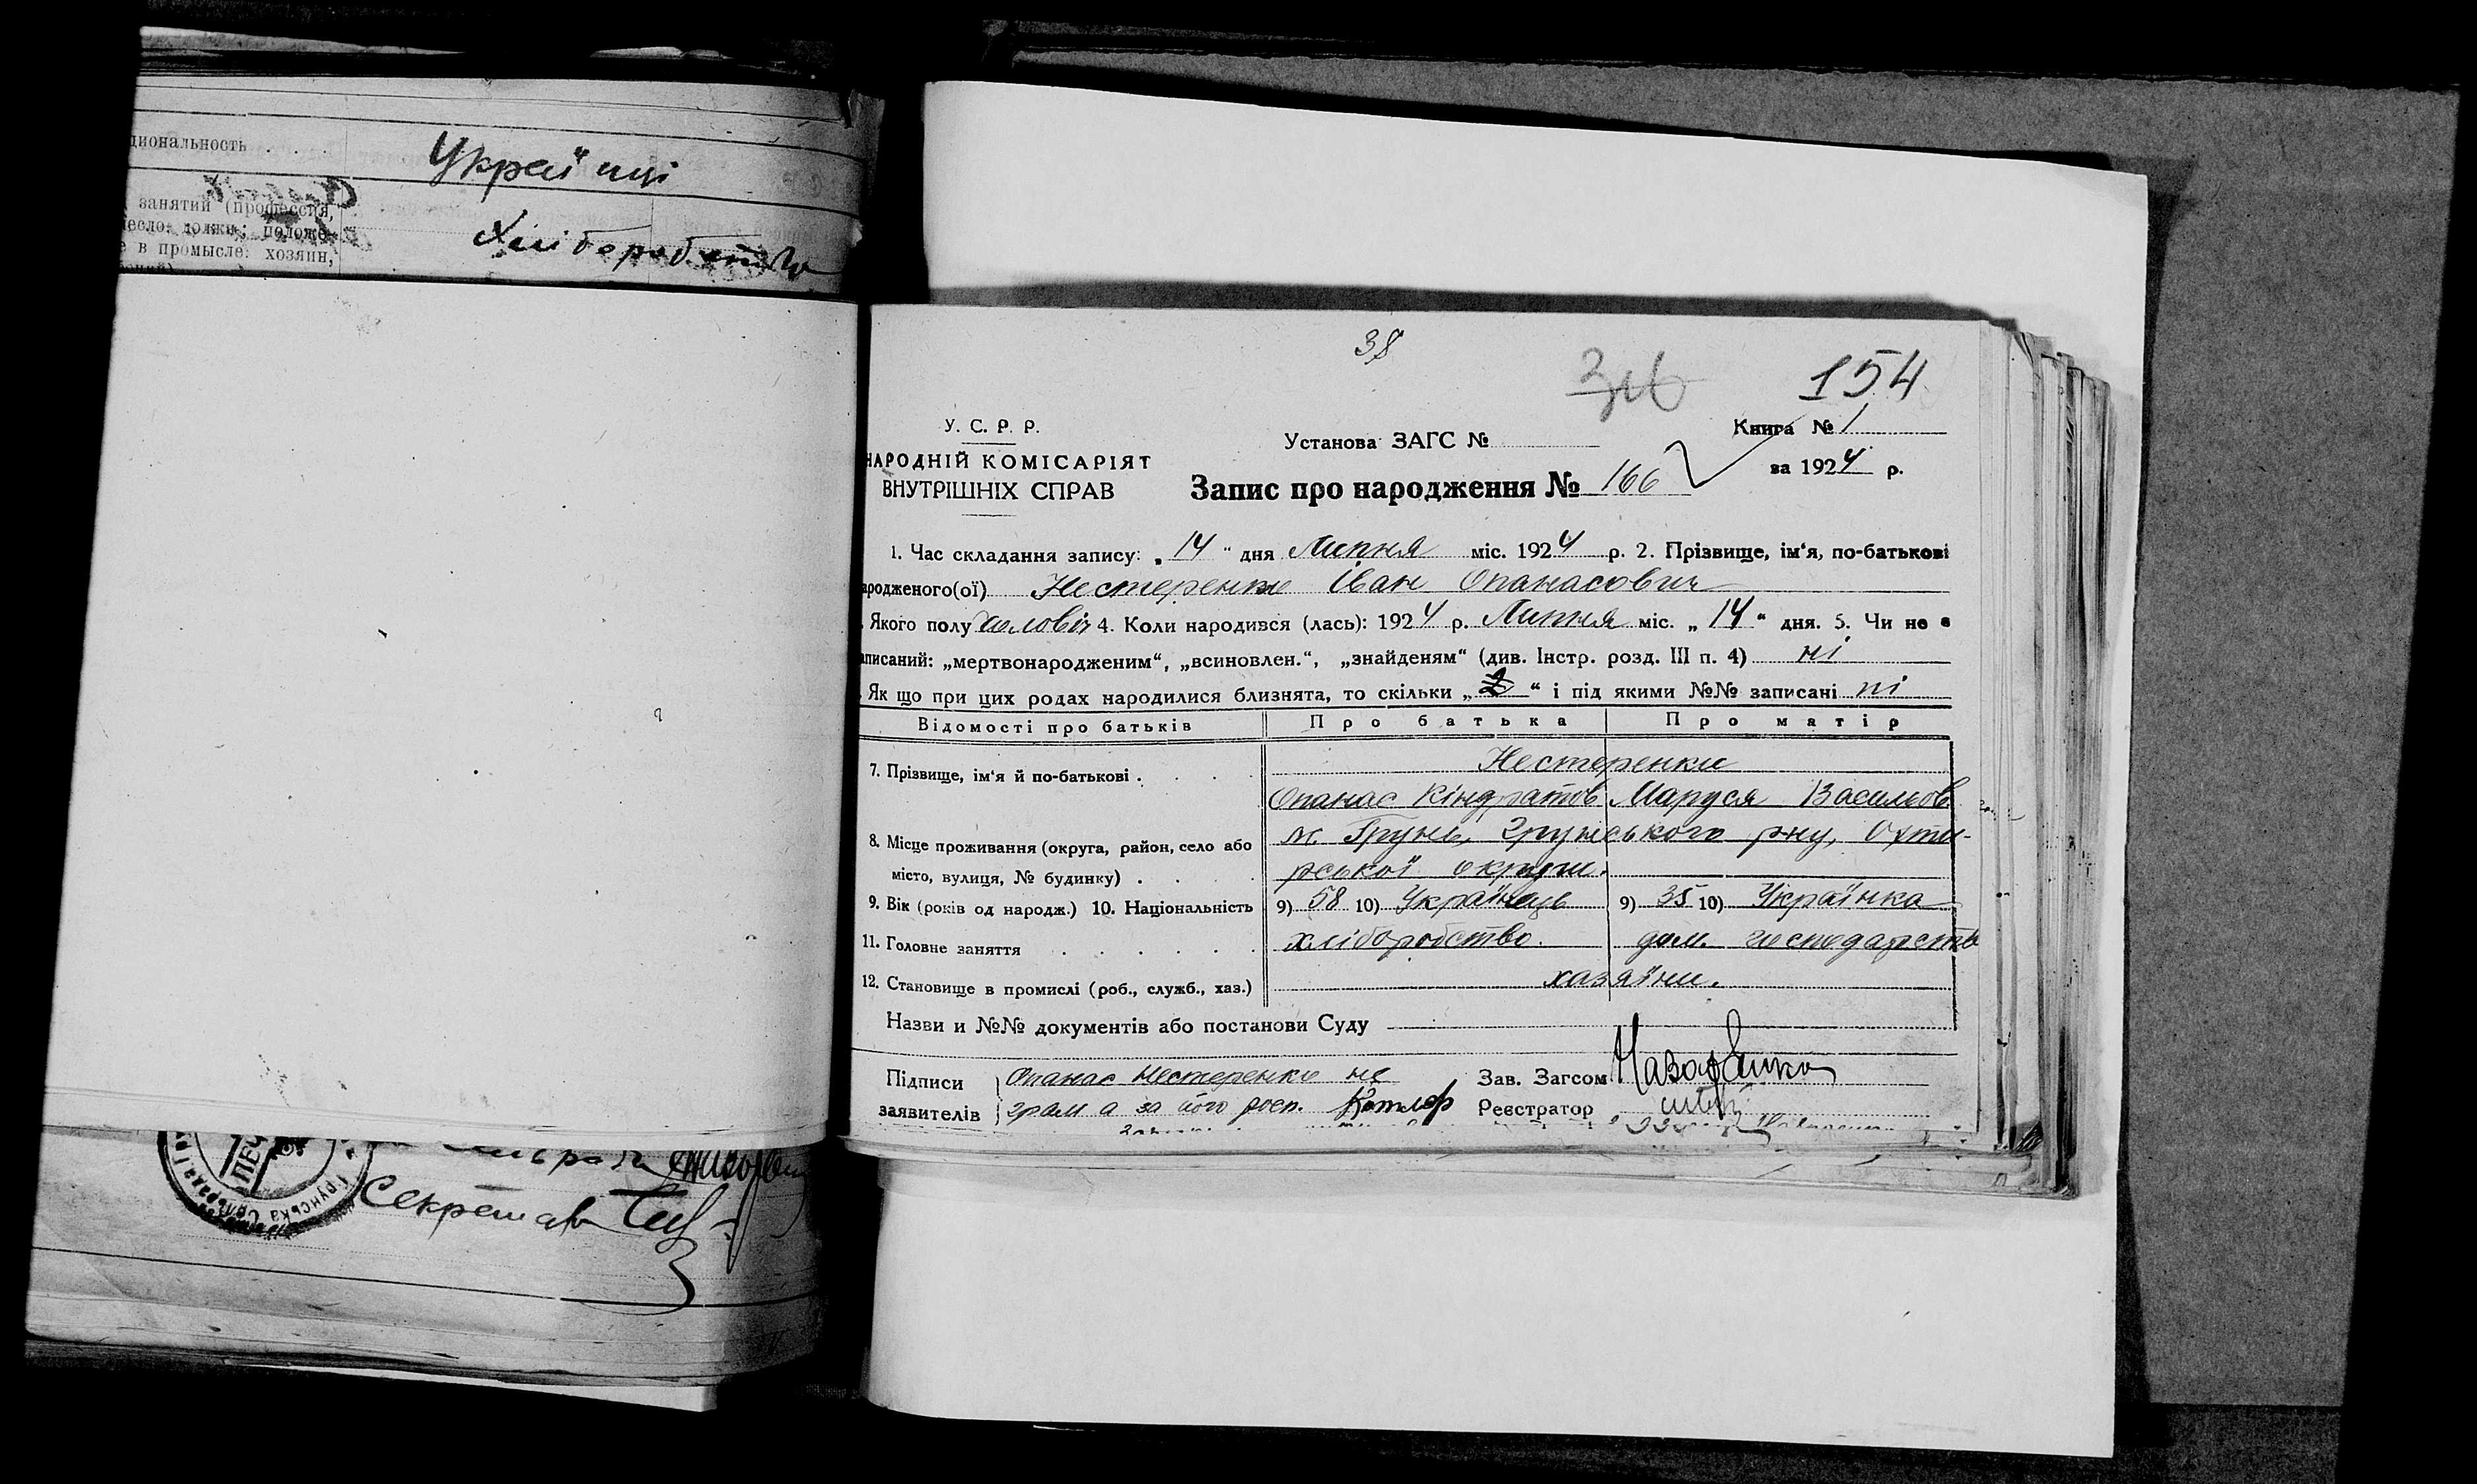 ціональность . . . .
Україnці
занятий (профессія,
несло: должн; положе-
е в промысле: хозяин,
Хліборобство
38
154
У. С. Р. Р.
Установа ЗАГС №
Книга № 1
НАРОДНІЙ КОМІСАРІЯТ
ВНУТРІШНІХ СПРАВ
за 1924 р.
Запис про народження № 166
1. Час складання запису: „ 14 “ дня Липня міс. 1924 р. 2. Прізвище, ім‘я, по-батькові
ародженого(ої) Нестеренко Іван Опанасович
Якого полу чоловіч 4. Коли народився (лась): 1924 р. Липня міс. „ 14 “ дня. 5. Чи не є
аписаний: „мертвонародженим“, „всиновлен.“, „знайденям“ (див. Інстр. розд. III п. 4) ні
Як що при цих родах народилися близнята, то скільки „ “ і під якими №№ записані ні
Відомості про батьків Про батька Про матір
7. Прізвище, ім‘я й по-батькові . . . .
Нестеренки
Опанас Кіндратов Маруся Васильов
8. Місце проживання (округа, район, село або
місто, вулиця, № будинку) . . . .
м. Грунь, Грунського р-ну, Охти-
рської округи.
9. Вік (років од народж.) 10. Національність 9) 58 10) Українець 9) 35 10) Українка
11. Головне заняття . . . . . . хліборобство. дом. господарств
12. Становище в промислі (роб., служб., хаз.) хазяїни.
Назви и №№ документів або постанови Суду
Підписи
заявителів
Опанас Нестеренко не
грам а за його росп.
Зав. Загсом
Реєстратор
ПЕЧ
Грунська
Секретар